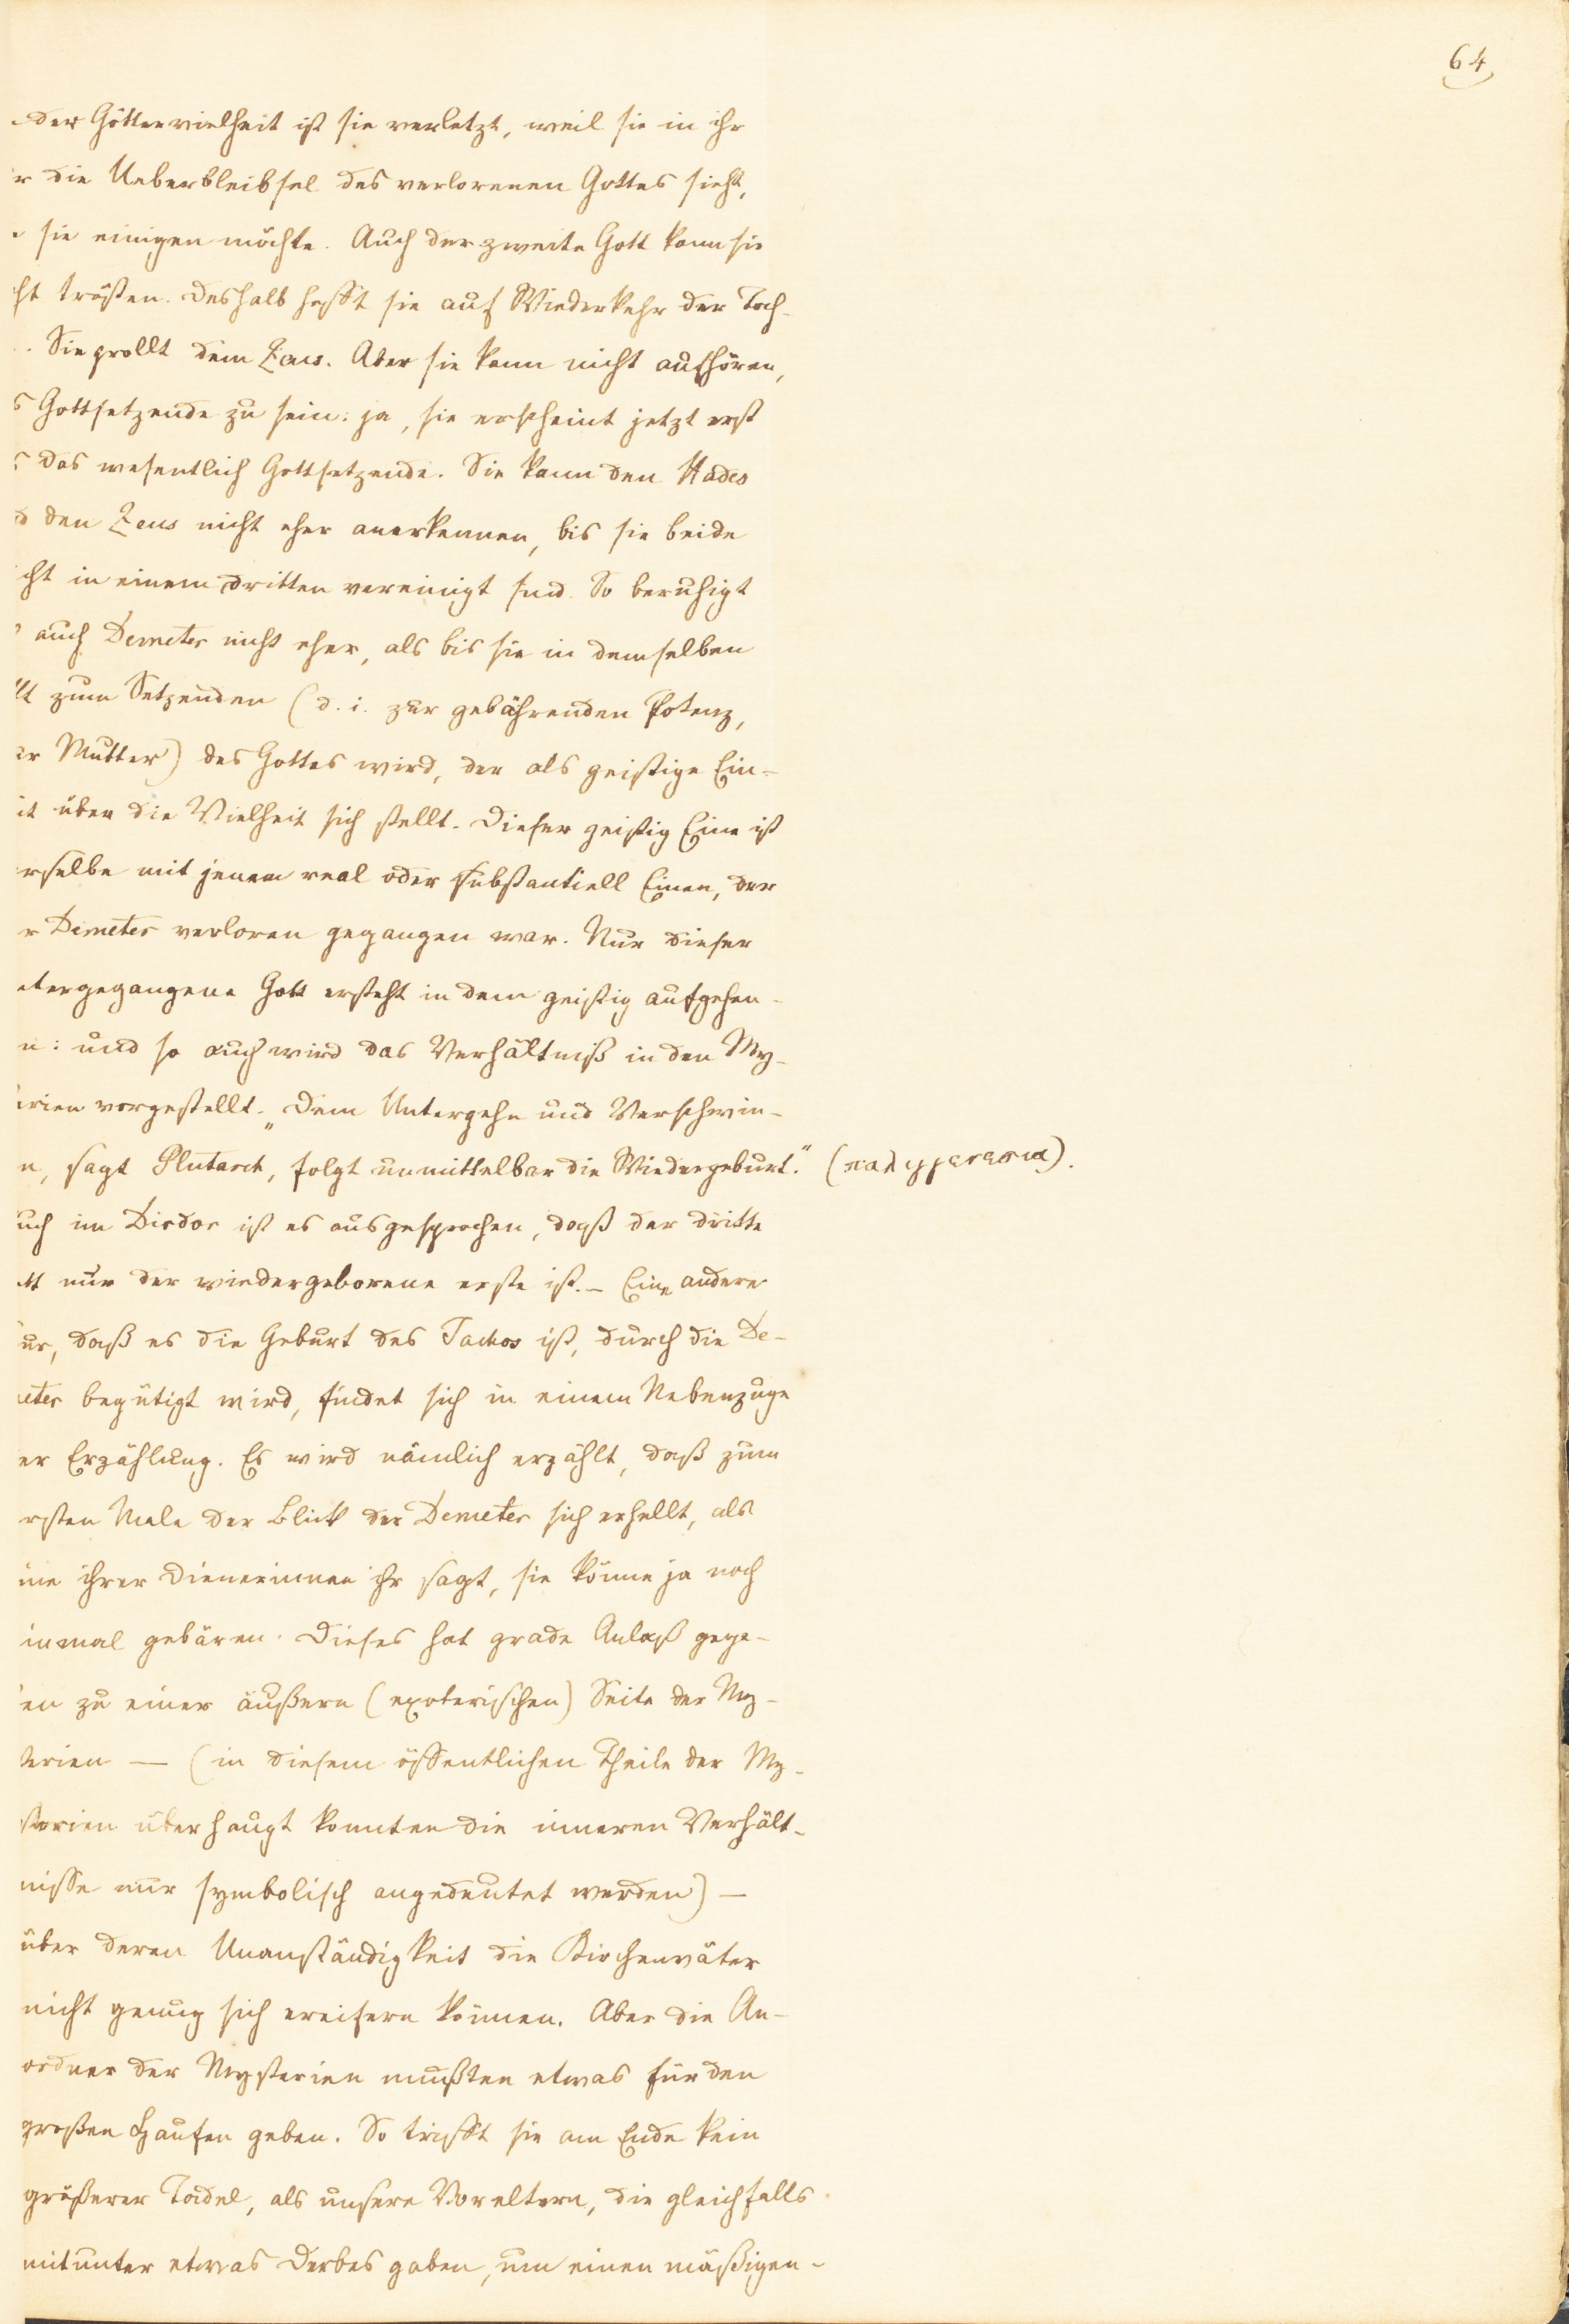 64
der Göttervielheit ist sie verletzt, weil sie in ihr
r die Ueberbleibsel des verlorenen Gottes sieht,
sie einigen möchte. Auch der zweite Gott kann sie
ht trösten. Deshalb hofft sie auf Wiederkehr der Toch-
. Sie grollt dem Zeus. Aber sie kann nicht aufhören,
s Gottsetzende zu sein: ja, sie erscheint jetzt erst
s das wesentlich Gottsetzende. Sie kann den Hades
d den Zeus nicht eher anerkennen, bis sie beide
cht in einem dritten vereinigt sind. So beruhigt
auch Demeter nicht eher, als bis sie in demselben
lt zum Setzenden (d. i. zur gebährenden Potenz,
er Mutter) des Gottes wird, der als geistige Ein-
it über die Vielheit sich stellt. Dieser geistig Eine ist
rselbe mit jenem real oder substantiell Einen, der
r Demeter verloren gegangen war. Nur dieser
tergegangene Gott ersteht in dem geistig aufgehen-
n: und so auch wird das Verhältniß in den My-
erien vorgestellt. „Dem Untergehn und Verschwin-
n, sagt Plutarch, folgt unmittelbar die Wiedergeburt.“ (παλιγγενεσια).
uch im Diodor ist es ausgesprochen, daß der dritte
tt nur der wiedergeborene erste ist. – Eine andere
ur, daß es die Geburt des Jackos ist, durch die De-
eter begütigt wird, findet sich in einem Nebenzuge
er Erzählung. Es wird nämlich erzählt, daß zum
rsten Male der Blick der Demeter sich erhellt, als
ine ihrer Dienerinnen ihr sagt, sie könne ja noch
inmal gebären. Dieses hat grade Anlaß gege-
en zu einer äußern (exoterischen) Seite der My-
terien — (in diesem öffentlichen Theile der My-
sterien überhaupt konnten die inneren Verhält-
nisse nur symbolisch angedeutet werden) —
über deren Unanständigkeit die Kirchenväter
nicht genug sich ereifern können. Aber die An-
ordner der Mysterien mußten etwas für den
großen Haufen geben. So trifft sie am Ende kein
größerer Tadel, als unsere Voreltern, die gleichfalls
mitunter etwas Derbes gaben, um einen mäßigen-